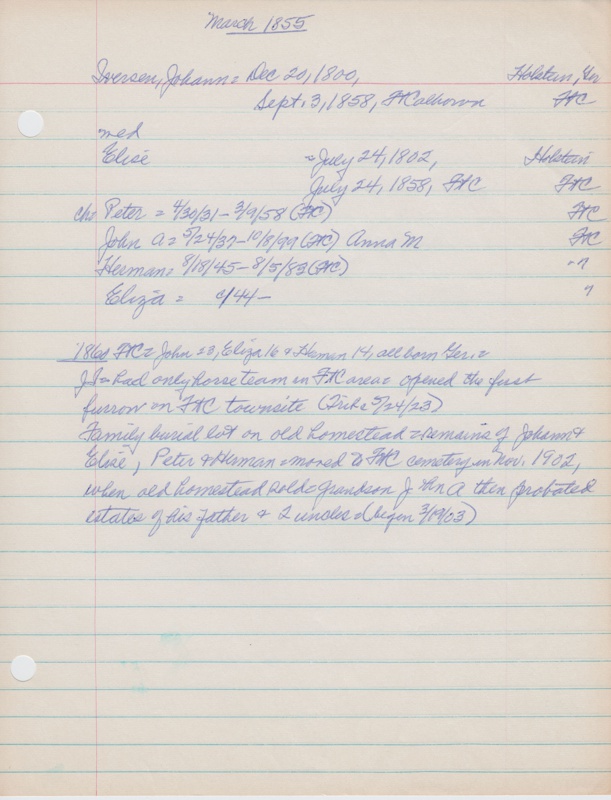 March 1855
Iversen, Johann = Dec 20, 1800, Holstein, Ger
Sept. 3, 1858, FtCalhoun FtC
med
Elise = July 24, 1802, Holstein
July 24, 1858, FtC FtC
chs Peter = 4/30/31 - 3/9/58 (FtC) FtC
John A = 5/24/37 - 10/8/99 (FtC) Anna M FtC
Herman = 8/18/45 - 8/5/83 (FtC) " "
Eliza = c/44 - "
1860 FtC = John 23, Eliza 16 & Herman 14, all born Ger. =
JI = had only horse team in FtC area = opened the first
furrow on FtC townsite (Trib = 5/24/23)
Family burial lot on old homestead = remains of Johann &
Elise, Peter & Herman = moved to FtC cemetery in Nov. 1902,
when old homestead sold = grandson John A then probated
estates of his father & 2 uncles = (begun 3/19/03)